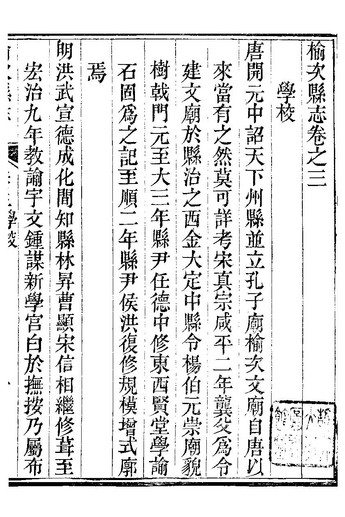 榆次縣志卷之三
學校
唐開元中詔天下州縣並立孔子廟榆次文廟自唐以
來當有之然莫可詳考宋真宗咸平二年龔父為令
建文廟於縣治之西金大定中縣令楊伯元崇廟貌
樹戟門元至大三年縣尹任德中修東西賢堂學諭
石固為之記至順二年縣尹侯洪復修規模增式廓
焉
明洪武宣德成化間知縣林昇曹顯宋信相繼修葺至
宏治九年教諭宇文鍾謀新學宮白於撫按乃屬布
學校